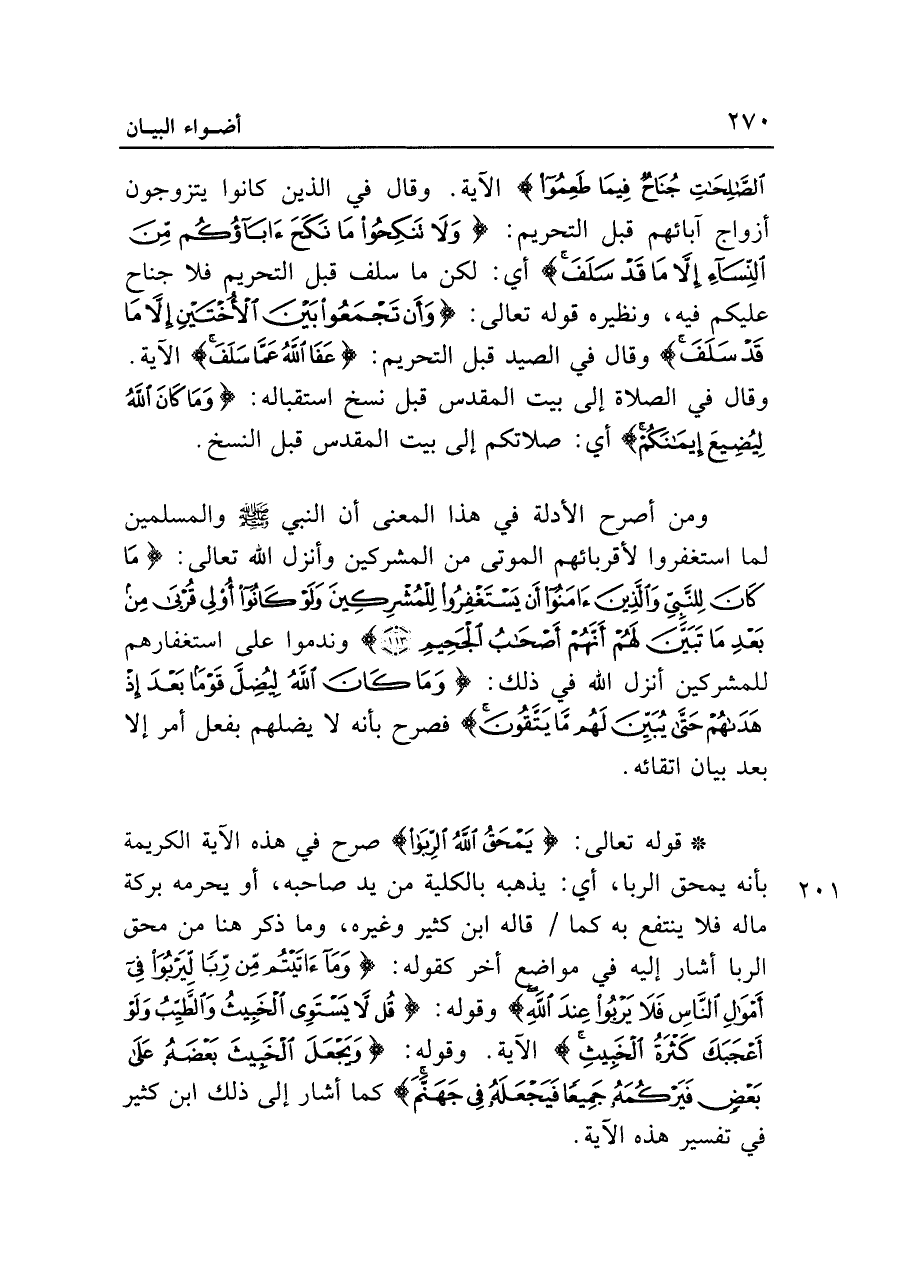 ٢٧٠ أضواء البيان
ٱلصَّٰلِحَٰتِ جُنَاحٌ فِيمَا طَعِمُوٓاْ﴾ الآية. وقال في الذين كانوا يتزوجون
أزواج آبائهم قبل التحريم: ﴿وَلَا تَنكِحُواْ مَا نَكَحَ ءَابَآؤُكُم مِّنَ
ٱلنِّسَآءِ إِلَّا مَا قَدْ سَلَفَۚ﴾ أي: لكن ما سلف قبل التحريم فلا جناح
عليكم فيه، ونظيره قوله تعالى: ﴿وَأَن تَجْمَعُواْ بَيْنَ ٱلْأُخْتَيْنِ إِلَّا مَا
قَدْ سَلَفَۗ﴾ وقال في الصيد قبل التحريم: ﴿عَفَا ٱللَّهُ عَمَّا سَلَفَۚ﴾ الآية.
وقال في الصلاة إلى بيت المقدس قبل نسخ استقباله: ﴿وَمَا كَانَ ٱللَّهُ
لِيُضِيعَ إِيمَٰنَكُمْۚ﴾ أي: صلاتكم إلى بيت المقدس قبل النسخ.
ومن أصرح الأدلة في هذا المعنى أن النبي ﷺ والمسلمين
لما استغفروا لأقربائهم الموتى من المشركين وأنزل الله تعالى: ﴿مَا
كَانَ لِلنَّبِيِّ وَٱلَّذِينَ ءَامَنُوٓاْ أَن يَسْتَغْفِرُواْ لِلْمُشْرِكِينَ وَلَوْ كَانُوٓاْ أُوْلِي قُرْبَىٰ مِنۢ
بَعْدِ مَا تَبَيَّنَ لَهُمْ أَنَّهُمْ أَصْحَٰبُ ٱلْجَحِيمِ ١١٣﴾ وندموا على استغفارهم
للمشركين أنزل الله في ذلك: ﴿وَمَا كَانَ ٱللَّهُ لِيُضِلَّ قَوْمَۢا بَعْدَ إِذْ
هَدَىٰهُمْ حَتَّىٰ يُبَيِّنَ لَهُم مَّا يَتَّقُونَۚ﴾ فصرح بأنه لا يضلهم بفعل أمر إلا
بعد بيان اتقائه.
* قوله تعالى: ﴿يَمْحَقُ ٱللَّهُ ٱلرِّبَوٰاْ﴾ صرح في هذه الآية الكريمة
٢٠١ بأنه يمحق الربا، أي: يذهبه بالكلية من يد صاحبه، أو يحرمه بركة
ماله فلا ينتفع به كما / قاله ابن كثير وغيره، وما ذكر هنا من محق
الربا أشار إليه في مواضع أخر كقوله: ﴿وَمَآ ءَاتَيْتُم مِّن رِّبًا لِّيَرْبُوَاْ فِيٓ
أَمْوَٰلِ ٱلنَّاسِ فَلَا يَرْبُواْ عِندَ ٱللَّهِۖ﴾ وقوله: ﴿قُل لَّا يَسْتَوِي ٱلْخَبِيثُ وَٱلطَّيِّبُ وَلَوْ
أَعْجَبَكَ كَثْرَةُ ٱلْخَبِيثِۚ﴾ الآية. وقوله: ﴿وَيَجْعَلَ ٱلْخَبِيثَ بَعْضَهُۥ عَلَىٰ
بَعْضٍ فَيَرْكُمَهُۥ جَمِيعًا فَيَجْعَلَهُۥ فِي جَهَنَّمَۚ﴾ كما أشار إلى ذلك ابن كثير
في تفسير هذه الآية.